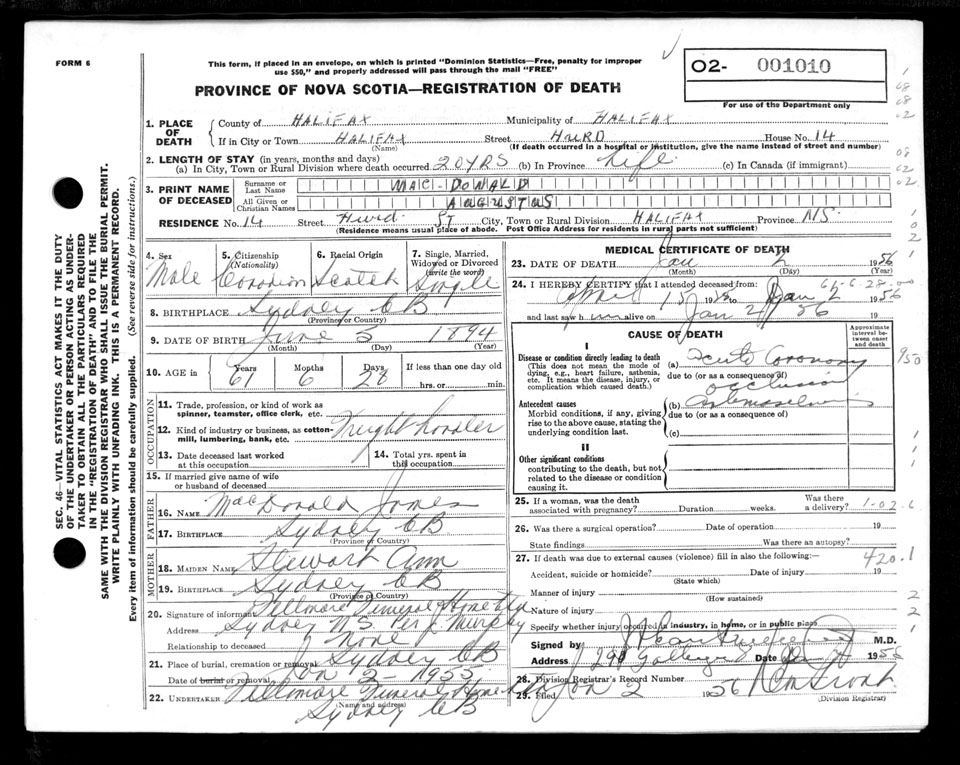 FORM 6
This form, if placed in an envelope, on which is printed "Dominion Statistics—Free, penalty for improper
use $50," and properly addressed will pass through the mail "FREE"
O2- 001010
For use of the Department only
PROVINCE OF NOVA SCOTIA—REGISTRATION OF DEATH
SEC. 46—VITAL STATISTICS ACT MAKES IT THE DUTY
OF THE UNDERTAKER OR PERSON ACTING AS UNDER-
TAKER TO OBTAIN ALL THE PARTICULARS REQUIRED
IN THE "REGISTRATION OF DEATH" AND TO FILE THE
SAME WITH THE DIVISION REGISTRAR WHO SHALL ISSUE THE BURIAL PERMIT.
WRITE PLAINLY WITH UNFADING INK. THIS IS A PERMANENT RECORD.
Every item of information should be carefully supplied. (See reverse side for instructions.)
1. PLACE OF DEATH
County of HALIFAX Municipality of HALIFAX
If in City or Town HALIFAX Street HURD House No. 14
(Name) (If death occurred in a hospital or institution, give the name instead of street and number)
2. LENGTH OF STAY (in years, months and days)
(a) In City, Town or Rural Division where death occurred 20 YRS (b) In Province Life (c) In Canada (if immigrant)
3. PRINT NAME OF DECEASED
Surname or Last Name MAC-DONALD
All Given or Christian Names AUGUSTUS
RESIDENCE No. 14 Street Hurd ST City, Town or Rural Division HALIFAX Province N.S.
(Residence means usual place of abode. Post Office Address for residents in rural parts not sufficient)
4. Sex Male
5. Citizenship (Nationality) Canadian
6. Racial Origin Scotch
7. Single, Married, Widowed or Divorced (write the word) Single
8. BIRTHPLACE Sydney CB
(Province or Country)
9. DATE OF BIRTH June 5 1894
(Month) (Day) (Year)
10. AGE in Years 61 Months 6 Days 28 If less than one day old
hrs. or min.
OCCUPATION
11. Trade, profession, or kind of work as
spinner, teamster, office clerk, etc.
12. Kind of industry or business, as cotton-
mill, lumbering, bank, etc. Freight handler
13. Date deceased last worked
at this occupation
14. Total yrs. spent in
this occupation
15. If married give name of wife
or husband of deceased
FATHER
16. NAME MacDonald James
17. BIRTHPLACE Sydney CB
(Province or Country)
MOTHER
18. MAIDEN NAME Stewart Ann
19. BIRTHPLACE Sydney CB
(Province or Country)
20. Signature of informant Fillmore Funeral Home Ltd
Address Sydney N.S. Per J. Murphy
Relationship to deceased None
21. Place of burial, cremation or removal Sydney CB
Date of burial or removal Jan 2 - 1955
22. UNDERTAKER Fillmore Funeral Home
(Name and address)
Sydney CB
MEDICAL CERTIFICATE OF DEATH
23. DATE OF DEATH Jan 2 1956
(Month) (Day) (Year)
24. I HEREBY CERTIFY that I attended deceased from: 61-6-28-00
15 Jan 2 1956
and last saw him alive on Jan 2/56 19
CAUSE OF DEATH
Approximate interval between onset and death
I
Disease or condition directly leading to death
(This does not mean the mode of
dying, e.g., heart failure, asthenia,
etc. It means the disease, injury, or
complication which caused death.)
(a) Acute Coronary
due to (or as a consequence of)
occlusion
Antecedent causes
Morbid conditions, if any, giving
rise to the above cause, stating the
underlying condition last.
(b)
due to (or as a consequence of)
(c)
II
Other significant conditions
contributing to the death, but not
related to the disease or condition
causing it.
25. If a woman, was the death
associated with pregnancy? Duration weeks. Was there
a delivery? 1-02-6
26. Was there a surgical operation? Date of operation 19
State findings Was there an autopsy?
27. If death was due to external causes (violence) fill in also the following:— 420.1
Accident, suicide or homicide? Date of injury 19
(State which)
Manner of injury
(How sustained)
Nature of injury
Specify whether injury occurred in industry, in home, or in public place
Signed by M.D.
Address Date 1956
28. Division Registrar's Record Number
29. Filed Jan 2 1956
(Division Registrar)
950